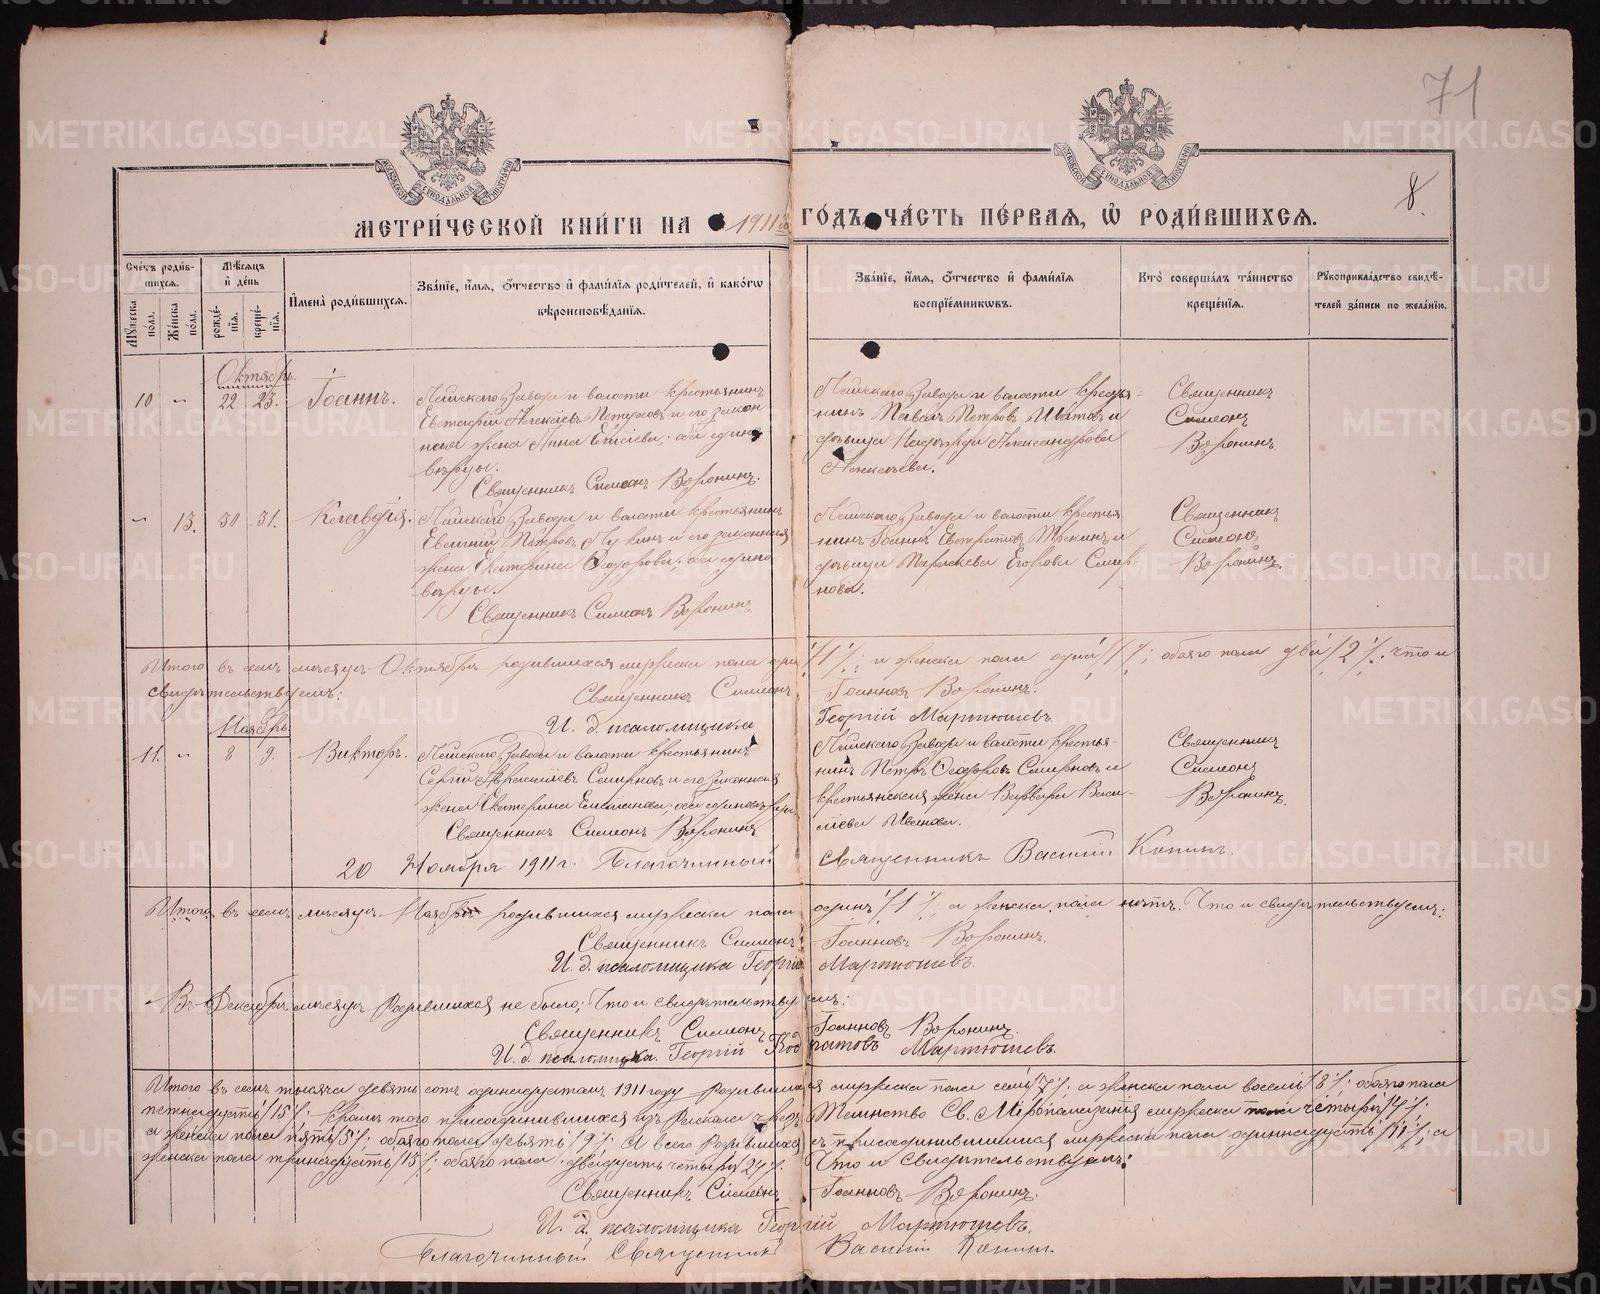 71
8.
МЕТРИ́ЧЕСКОЙ КНИ́ГИ НА 1911 ГО́ДЪ, ЧА́СТЬ ПЕ́РВАЯ, Ѡ҆ РОДИ́ВШИХСЯ.
Сче́тъ роди́вшихся.
Мꙋ́жеска по́ла.
Же́нска по́ла.
Мѣ́сяцъ и҆ де́нь
рожде́нїя.
креще́нїя.
И҆мена̀ роди́вшихся.
Зва́нїе, и҆́мя, ѻ҆́тчество и҆ фами́лїѧ роди́телей, и҆ како́гѡ вѣроисповѣ́данїя.
Зва́нїе, и҆́мя, ѻ҆́тчество и҆ фами́лїя воспрїе́мникѡвъ.
Кто̀ соверша́лъ та́инство креще́нїя.
Рꙋкоприкла́дство свидѣ́телей за́писи по жела́нїю.
Октябрь.
10 „ 22 23. Іоаннъ.
завода и волости крестьянинъ
Евстафій Алексіевъ и его закон
ная жена Анна; оба едино
вѣрцы.
Священникъ Симеонъ Воронинъ.
завода и волости крестья-
нинъ Павелъ Петровъ и
дѣвица Надежда Александрова
Алексѣева.
Священникъ
Симеонъ
Воронинъ.
„ 13. 30 31. Клавдія.
завода и волости крестьянинъ
Евгеній Петровъ и его законная
жена Екатерина Ѳеодорова; оба едино
вѣрцы.
Священникъ Симеонъ Воронинъ
завода и волости крестья
нинъ Іоаннъ и
дѣвица Параскева Егорова Смир
нова.
Священникъ
Симеонъ
Воронинъ.
Итого въ семъ мѣсяцѣ Октябрѣ родившихся мужеска пола одинъ /1/; и женска пола одна /1/; обоего пола два /2/. Что и
свидѣтельствуемъ:
Священникъ Симеонъ Іоанновъ Воронинъ.
И. д. псаломщика Георгій Мартюшевъ.
Ноябрь.
11. „ 8 9. Викторъ.
завода и волости крестьянинъ
Сергій Смирновъ и его законная
жена Екатерина; оба единовѣрцы
Священникъ Симеонъ Воронинъ
завода и волости крестья-
нинъ Петръ Ѳеодоровъ Смирновъ и
крестьянская жена Варвара Васи-
ліева Иванова.
Священникъ
Симеонъ
Воронинъ.
20 Ноября 1911 г. Благочинный Священникъ Василій Копинъ.
Итого въ семъ мѣсяцѣ Ноябрѣ родившихся мужеска пола одинъ /1/; а женска пола нѣтъ. Что и свидѣтельствуемъ:
Священникъ Симеонъ Іоанновъ Воронинъ.
И. д. псаломщика Георгій Мартюшевъ.
Въ Декабрѣ мѣсяцѣ Родившихся не было; Что и свидѣтельствуемъ:
Священникъ Симеонъ Іоанновъ Воронинъ.
И. д. псаломщика Георгій Кодратовъ Мартюшевъ.
Итого въ семъ тысяча девять сотъ одиннадцатомъ 1911 году Родившихся мужеска пола семь /7/; а женска пола восемь /8/; обоего пола
пятнадцать /15/. Кромѣ того присоединившихся изъ Раскола чрезъ Таинство Св. Мѵропомазанія мужеска пола четыре /4/;
а женска пола пять /5/; обоего пола девять /9/. А всего Родившихся съ присоединившимися мужеска пола одиннадцать /11/; а
женска пола тринадцать /13/; обоего пола двадцать четыре /24/. Что и свидѣтельствуемъ:
Священникъ Симеонъ Іоанновъ Воронинъ.
И. д. псаломщика Георгій Мартюшевъ.
Благочинный Священникъ Василій Копинъ.
METRIKI.GASO-URAL.RU